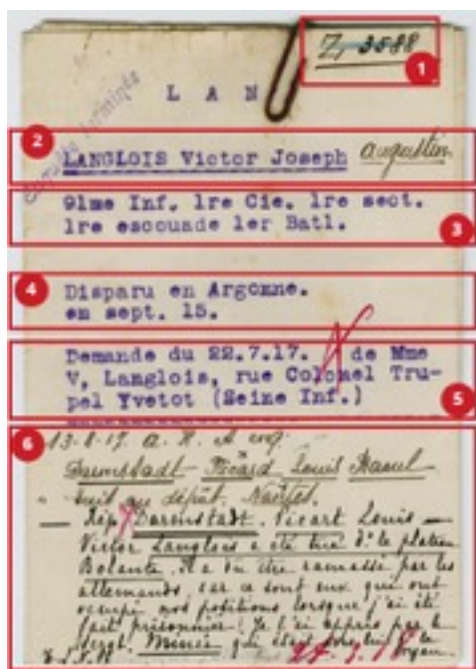 Z, 3588
1
L A N
2
LANGLOIS Victor Joseph augustin
91me Inf. 1re Cie. 1re sect.
1re escouade 1er Batl.
3
4
Disparu en Argonne.
en sept. 15.
Demande du 22.7.17. de Mme
V, Langlois, rue Colonel Tru-
pel Yvetot (Seine Inf.)
5
6
13-8-17 a. R. A
Darmstadt Picard Louis Raoul
au dépôt. Nantes.
Rép Darmstadt. Vicart Louis
Victor Langlois a été tué ds le plateau
Bolante. Il a du être ramassé par les
allemands, car ce sont eux qui ont
occupé nos positions lorsque j'ai été
fait prisonnier. Je l'ai appris par le
sergt. Minée qui était